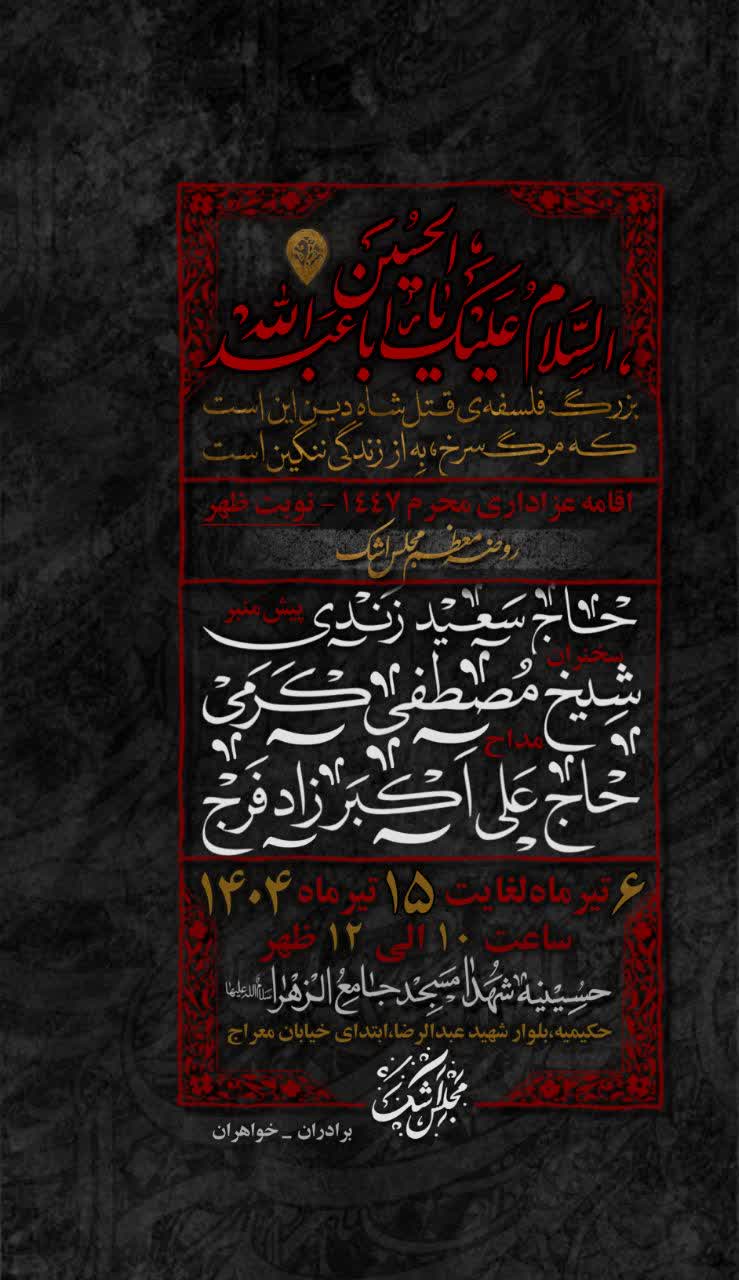 السَّلامُ عَلَيْكَ يا اَبا عَبْدِ اللّٰهِ الحُسَيْن
بزرگ فلسفه‌ی قتل شاه دین این است
که مرگ سرخ، بِه از زندگی ننگین است
اقامه عزاداری محرم ۱۴۴۷ - نوبت ظهر
روضه معظم مجلس اشک
حاج سَعید زَندی پیش منبر
سخنران
شیخ مُصطَفی کَرَمی
مداح
حاج عَلی اَکبَر زاد فَرَج
۶ تیر ماه لغایت ۱۵ تیر ماه ۱۴۰۴
ساعت ۱۰ الی ۱۲ ظهر
حسینیه شهدا مسجد جامع الزهرا سلام‌الله‌علیها
حکیمیه،بلوار شهید عبدالرضا،ابتدای خیابان معراج
مجلس اشک
برادران _ خواهران